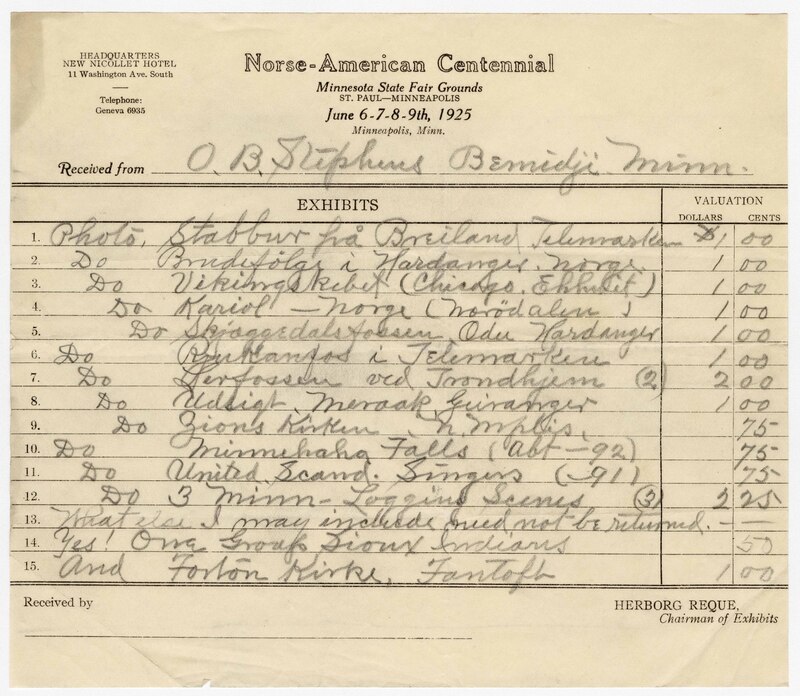 HEADQUARTERS
NEW NICOLLET HOTEL
11 Washington Ave. South
Telephone:
Geneva 6935
Norse-American Centennial
Minnesota State Fair Grounds
ST. PAUL—MINNEAPOLIS
June 6-7-8-9th, 1925
Minneapolis, Minn.
Received from O. B. Stephens Bemidji Minn.
EXHIBITS VALUATION
DOLLARS CENTS
1. Photo, Stabbur på Breiland Telemarken $1 00
2. Do Brudefölge i Hardanger Norge 1 00
3. Do Vikingskibet (Chicago Exhibit) 1 00
4. Do Kariol — Norge (Norödalen) 1 00
5. Do Skjæggedalsfossen Odde Hardanger 1 00
6. Do Rjukanfos i Telemarken 1 00
7. Do Lerfossen ved Trondhjem (2) 2 00
8. Do Udsigt Meraak Geiranger 1 00
9. Do Zions Kirken N. Mplis. 75
10. Do Minnehaha Falls (Abt –92) 75
11. Do United Scand. Singers (–91) 75
12. Do 3 Minn– Logging Scenes (3) 2 25
13. What else I may include need not be returned. — —
14. Yes! One Group Sioux Indians 50
15. And Fortön Kirke, Fantoft 1 00
Received by
HERBORG REQUE,
Chairman of Exhibits